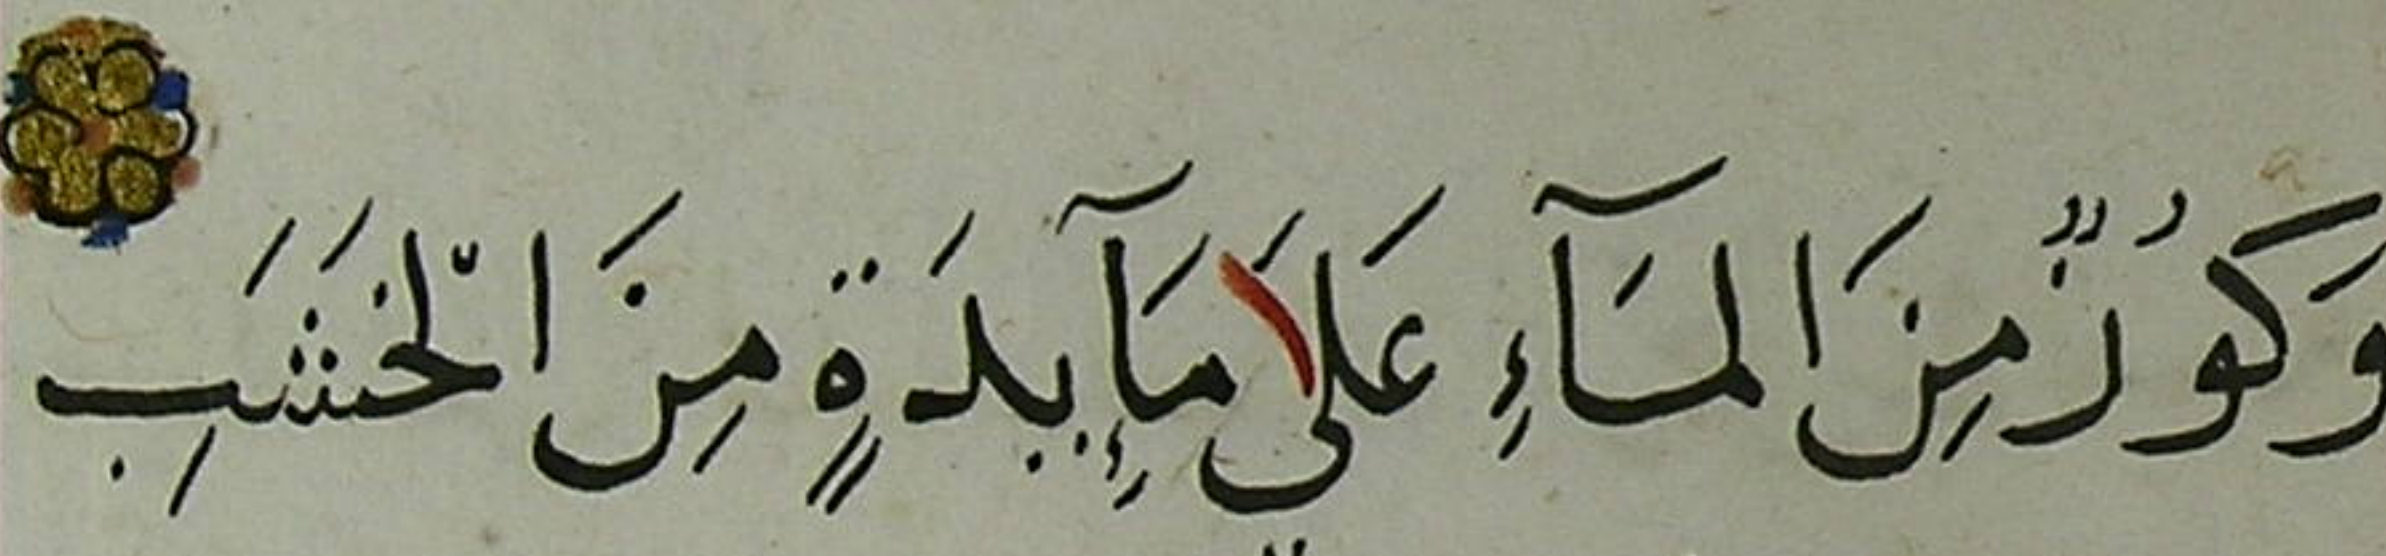 وَكُوزٌ مِنَ المَآءِ عَلَى مَآئِدَةٍ مِنَ الخَشَبِ